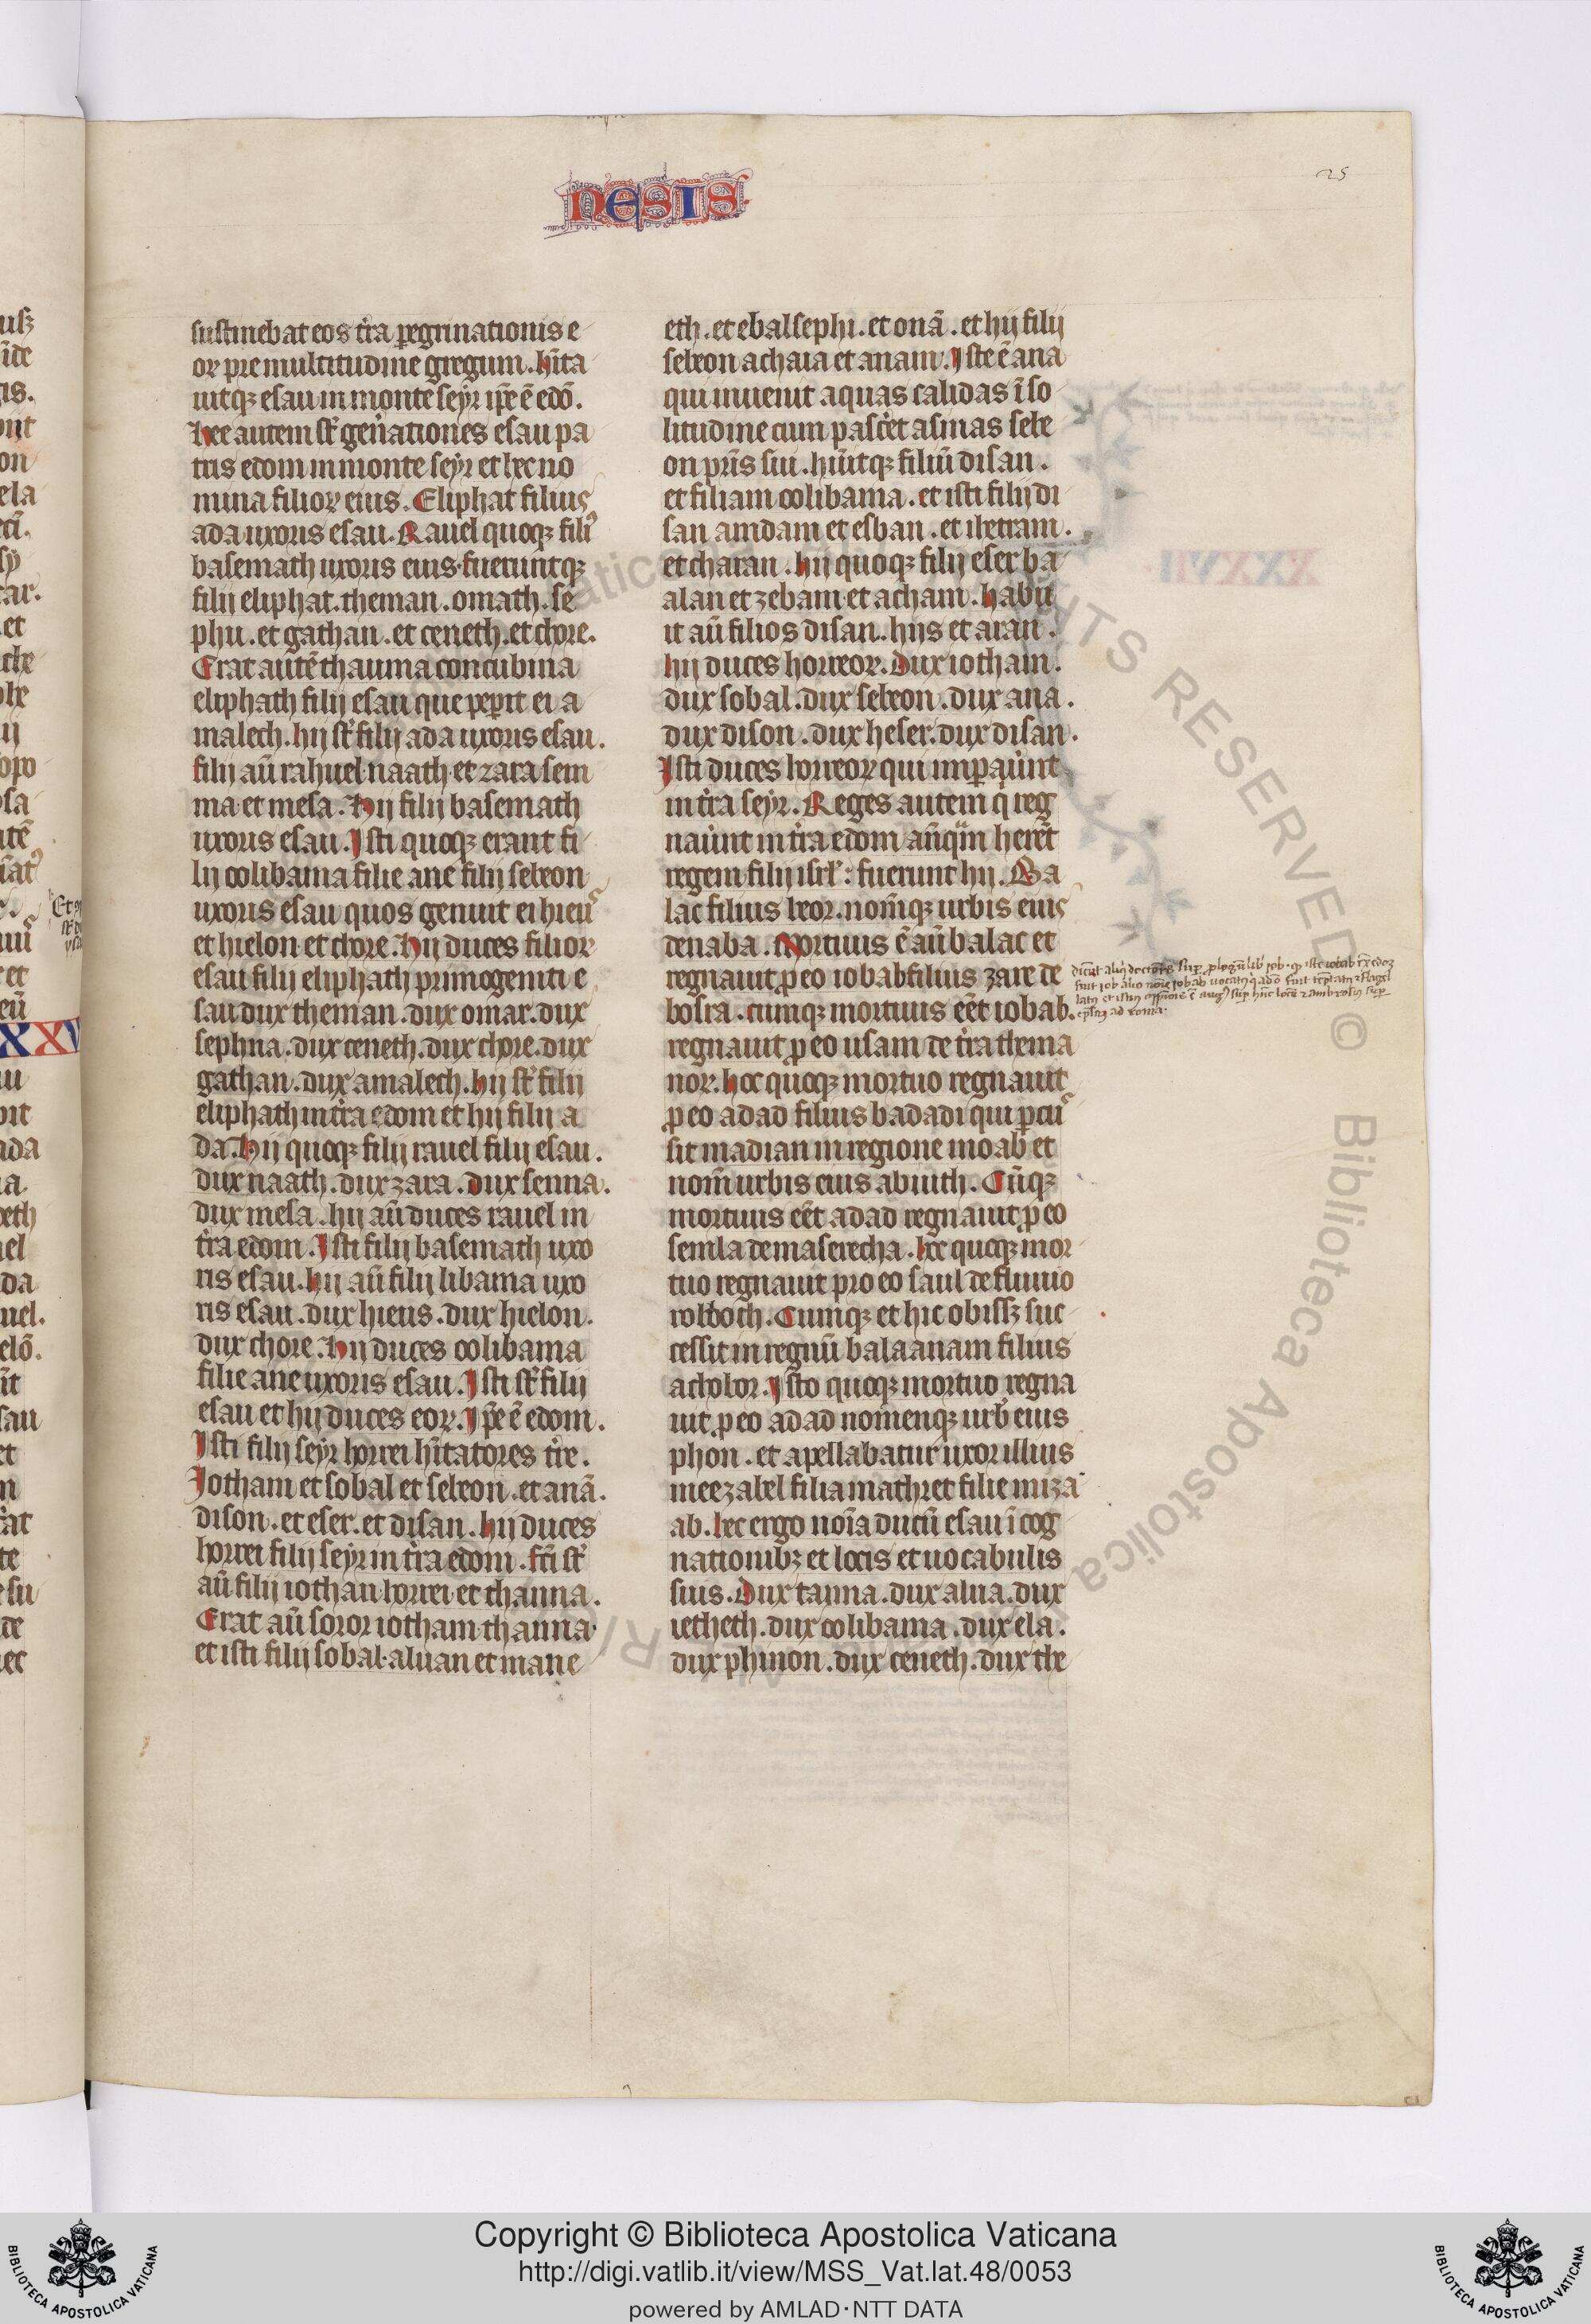 NESIS
25
sustinebat eos t̾ra ꝑegrinationis e
oꝝ pre multitudine gregum. hĩta
uitqꝫ esau in monte seyr ip̃e ẽ edõ.
Hee autem st̾ gen̾ationes esau pa
tris edom in monte seyr et hec no
mina filioꝝ eius. Eliphat filius
ada uxoris esau. Rauel quoqꝫ fili᾽
basemath uxoris eius. fueruntqꝫ
filij eliphat. theman. omath. se
phu. et gathan. et ceneth. et chore.
Erat autẽ thauma concubina
eliphath filij esau que peꝑit ei a
malech. hij st̾ filij ada uxoris esau.
filij aũ rahuel naath et zara sem
ma et mesa. Hij filij basemath
uxoris esau. Isti quoqꝫ erant fi
lij oolibama filie ane filij sebeon
uxoris esau quos genuit ei hieu᾽
et hielon et chore. Hij duces filioꝝ
esau filij eliphath primogeniti e
sau dux theman. dux omar. dux
sephua. dux ceneth. dux chore. dux
gathan. dux amalech. hij st̾ filij
eliphath in t̾ra edom et hij filij a
da. Hij quoqꝫ filij rauel filij esau.
dux naath. dux zara. dux senna.
dux mesa. hij aũ duces rauel in
t̾ra edom. Isti filij basemath uxo
ris esau. hij aũ filij libama uxo
ris esau. dux hieus. dux hielon.
dux chore. Hij duces oolibama
filie ane uxoris esau. Isti st̾ filij
esau et hij duces eoꝝ. Ip̃e ẽ edom.
Isti filij seyr horrei hĩtatores t̾re.
Iotham et sobal et sebeon. et anã.
dison. et eser. et disan. hij duces
horrei filij seyr in t̾ra edom. fc̃i st̾
aũ filij iothan horrei et thanna.
Erat aũ soror iotham thanna.
et isti filij sobal. aluan et mane
eth. et ebal sephi. et onã. et hij filij
sebeon achaia et anam. Iste ẽ ana
qui inuenit aquas calidas ĩ so
litudine cum pasc̾et asinas sebe
on pr̃is sui. hũitqꝫ filiũ disan.
et filiam oolibama. et isti filij di
san amdam et esban. et ihetram.
et charan. hij quoqꝫ filij eser ba
alan et zebam et acham. habu
it aũ filios disan. hus et aran.
hij duces horreoꝝ. Dux iotham.
dux sobal. dux sebeon. dux ana.
dux dison. dux heser. dux disan.
Isti duces horreoꝝ qui imꝑau̾unt
in t̾ra seyr. Reges autem q̾ reg
nau̾unt in t̾ra edom añq̃m her̃et
regem filij isrł: fuerunt hij. Ba
lac filius beor. nom̃qꝫ urbis eius
denaba. Mortuus ẽ aũ balac et
regnauit ꝓ eo iobab filius zare de
bosra. cumqꝫ mortuus eẽt iobab.
regnauit ꝓ eo usam de t̾ra thema
noꝝ. hoc quoqꝫ mortuo regnauit
ꝓ eo adad filius badadi qui ꝑcu᾽
sit madian in regione moab et
nom̃ urbis eius abiuth. Cũqꝫ
mortuus eẽt adad regnauit ꝓ eo
semla de maserecha. hoc quoqꝫ mor
tuo regnauit pro eo saul de fluuio
roboth. Cumqꝫ et hic obissꝫ suc
cessit in regnũ balaanam filius
achobor. Isto quoqꝫ mortuo regna
uit ꝓ eo adad nomenqꝫ urb̾ eius
phon. et apellabatur uxor illius
meezabel filia mathret filie miza
ab. hec ergo nõia ducũ esau ĩ cog
nationibꝫ et locis et uocabulis
suis. Dux tanna. dux alua. dux
ietheth. dux oolibama. dux ela.
dux phinon. dux ceneth. dux the
Copyright © Biblioteca Apostolica Vaticana
http://digi.vatlib.it/view/MSS_Vat.lat.48/0053
powered by AMLAD·NTT DATA
BIBLIOTECA APOSTOLICA VATICANA
BIBLIOTECA APOSTOLICA VATICANA